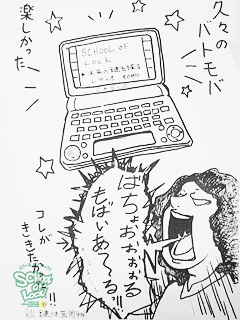 久々の
バトモバ
楽しかった
SCHOOL OF
LOCK
ばちょおぉぉぉる
もばいあ〜〜る!!
コレが
ききたか
!!
School
of
Lock!